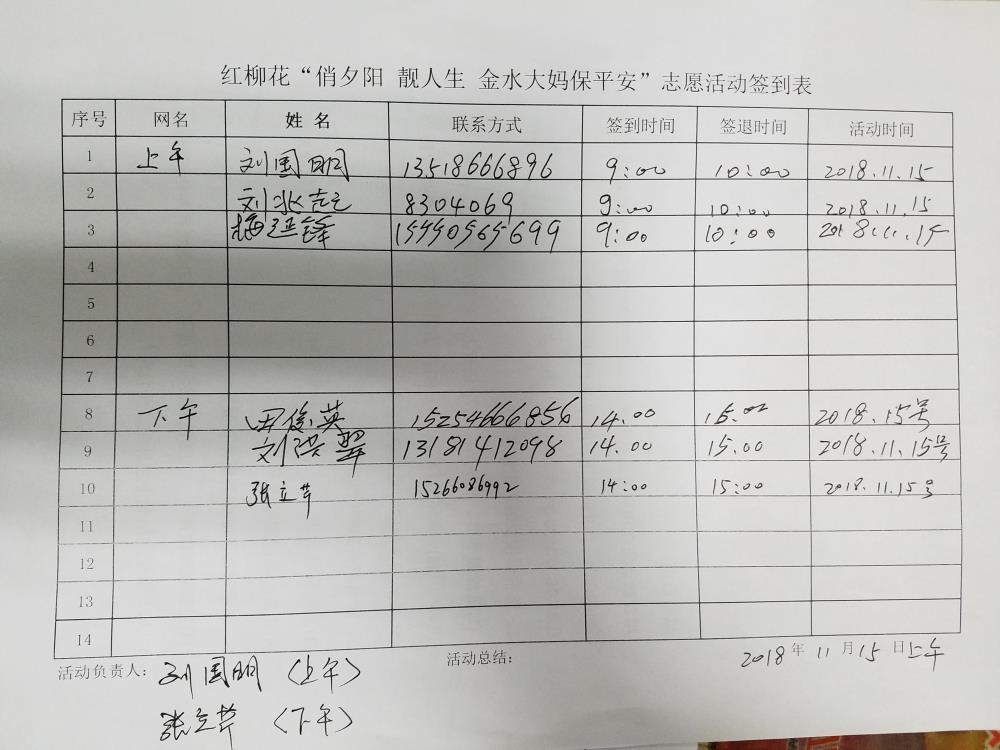 红柳花“俏夕阳 靓人生 金水大妈保平安”志愿活动签到表
序号 网名 姓名 联系方式 签到时间 签退时间 活动时间
1 上午 刘国明 13518666896 9:00 10:00 2018.11.15
2 刘 8304069 9:00 10:00 2018.11.15
3 梅延锋 9:00 10:00 2018.11.15
4
5
6
7
8 下午 田俊英 15254666856 14.00 15.00 2018.15号
9 刘洪翠 13181412098 14.00 15.00 2018.11.15号
10 张立芹 15266086992 14:00 15:00 2018.11.15号
11
12
13
14
活动负责人: 刘国明 (上午) 活动总结: 2018年11月15日上午
张立芹 (下午)